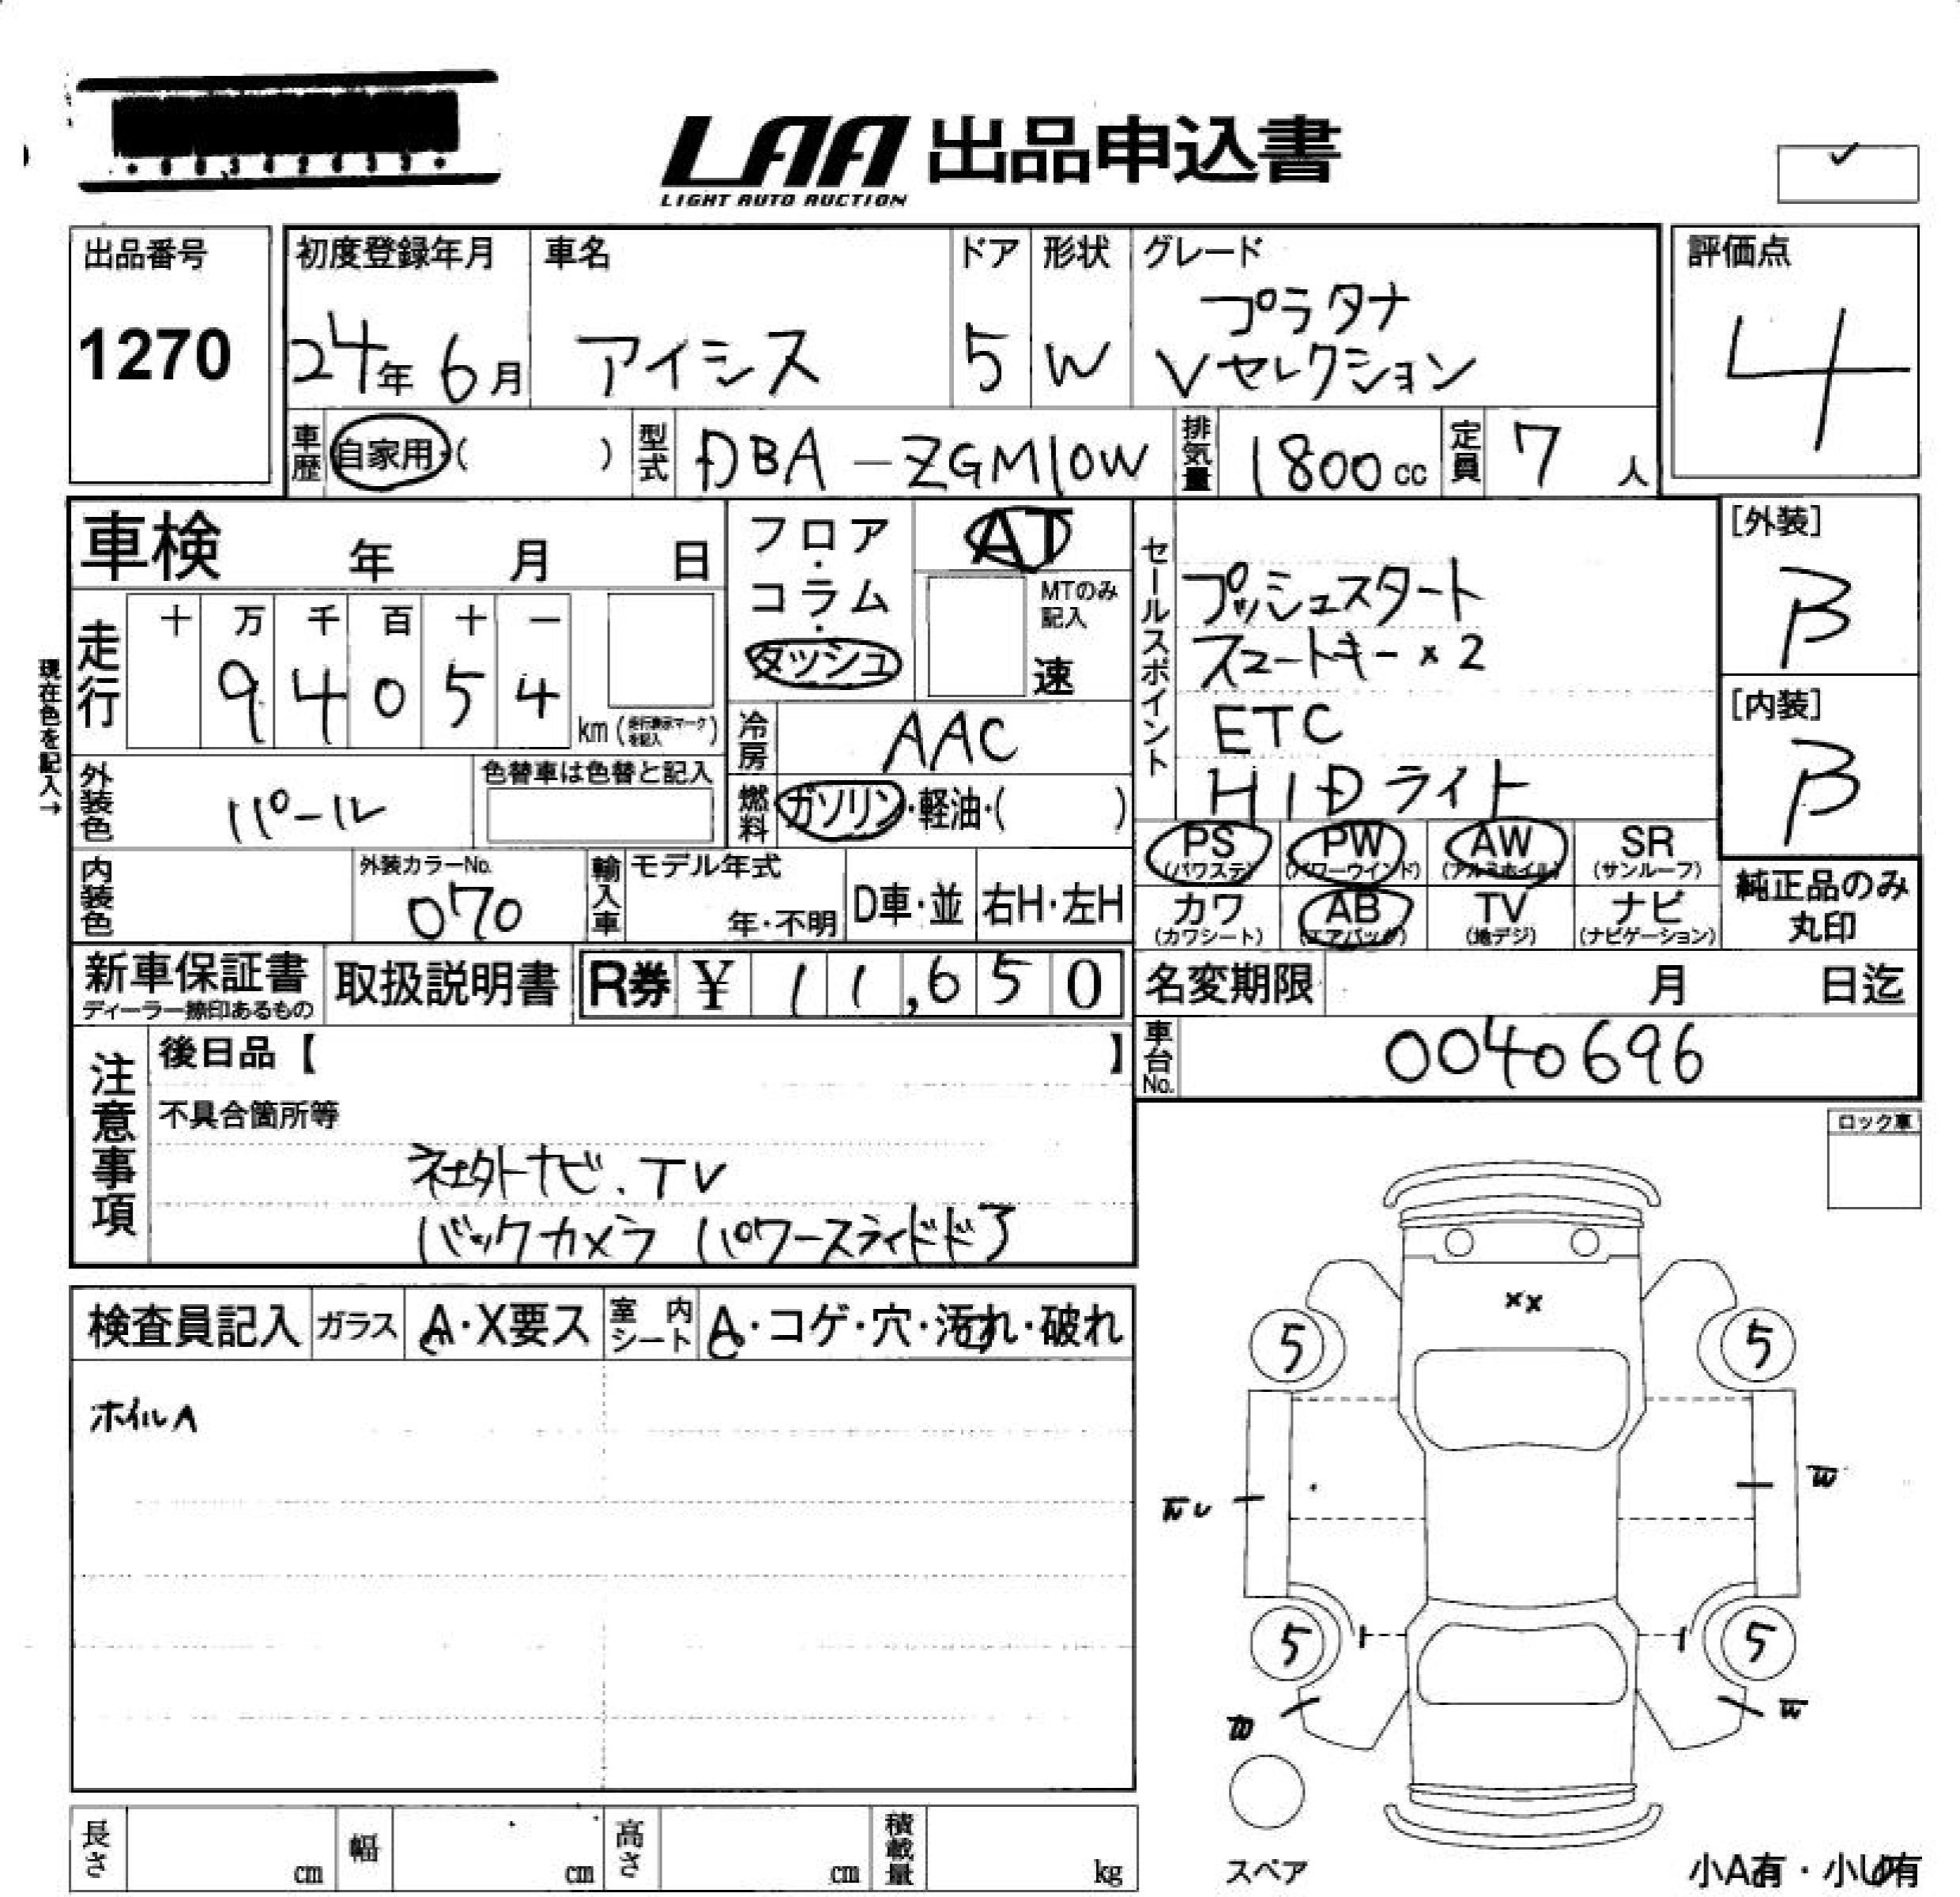 LAA 出品申込書
LIGHT AUTO AUCTION
出品番号
1270
初度登録年月
24年 6月
車名
アイシス
ドア
5
形状
W
グレード
プラタナ
Vセレクション
評価点
4
車歴
自家用・( )
型式
DBA-ZGM10W
排気量
1800cc
定員
7人
車検 年 月 日
フロア・
コラム・
ダッシュ
AT
MTのみ
記入
速
セールスポイント
プッシュスタート
スマートキー×2
ETC
HIDライト
[外装]
B
[内装]
B
現在色を記入→
走行
十 万 千 百 十 一
9 4 0 5 4
km(走行表示マークを記入)
冷房
AAC
外装色
パール
色替車は色替と記入
燃料
ガソリン・軽油・( )
PS
(パワステ)
PW
(パワーウインド)
AW
(アルミホイル)
SR
(サンルーフ)
カワ
(カワシート)
AB
(エアバッグ)
TV
(地デジ)
ナビ
(ナビゲーション)
純正品のみ
丸印
内装色
外装カラーNo.
070
輸入車
モデル年式
年・不明
D車・並
右H・左H
新車保証書
ディーラー捺印あるもの
取扱説明書
R券 ¥ 11,650
名変期限 月 日迄
車台No.
0040696
注意事項
後日品【 】
不具合箇所等
社外ナビ.TV
バックカメラ パワースライドドア
ロック車
検査員記入
ガラス
A・X要ス
室内シート
A・コゲ・穴・汚れ・破れ
ホイルA
××
5
5
5
5
スペア
長さ cm
幅 cm
高さ cm
積載量 kg
小A有・小U有